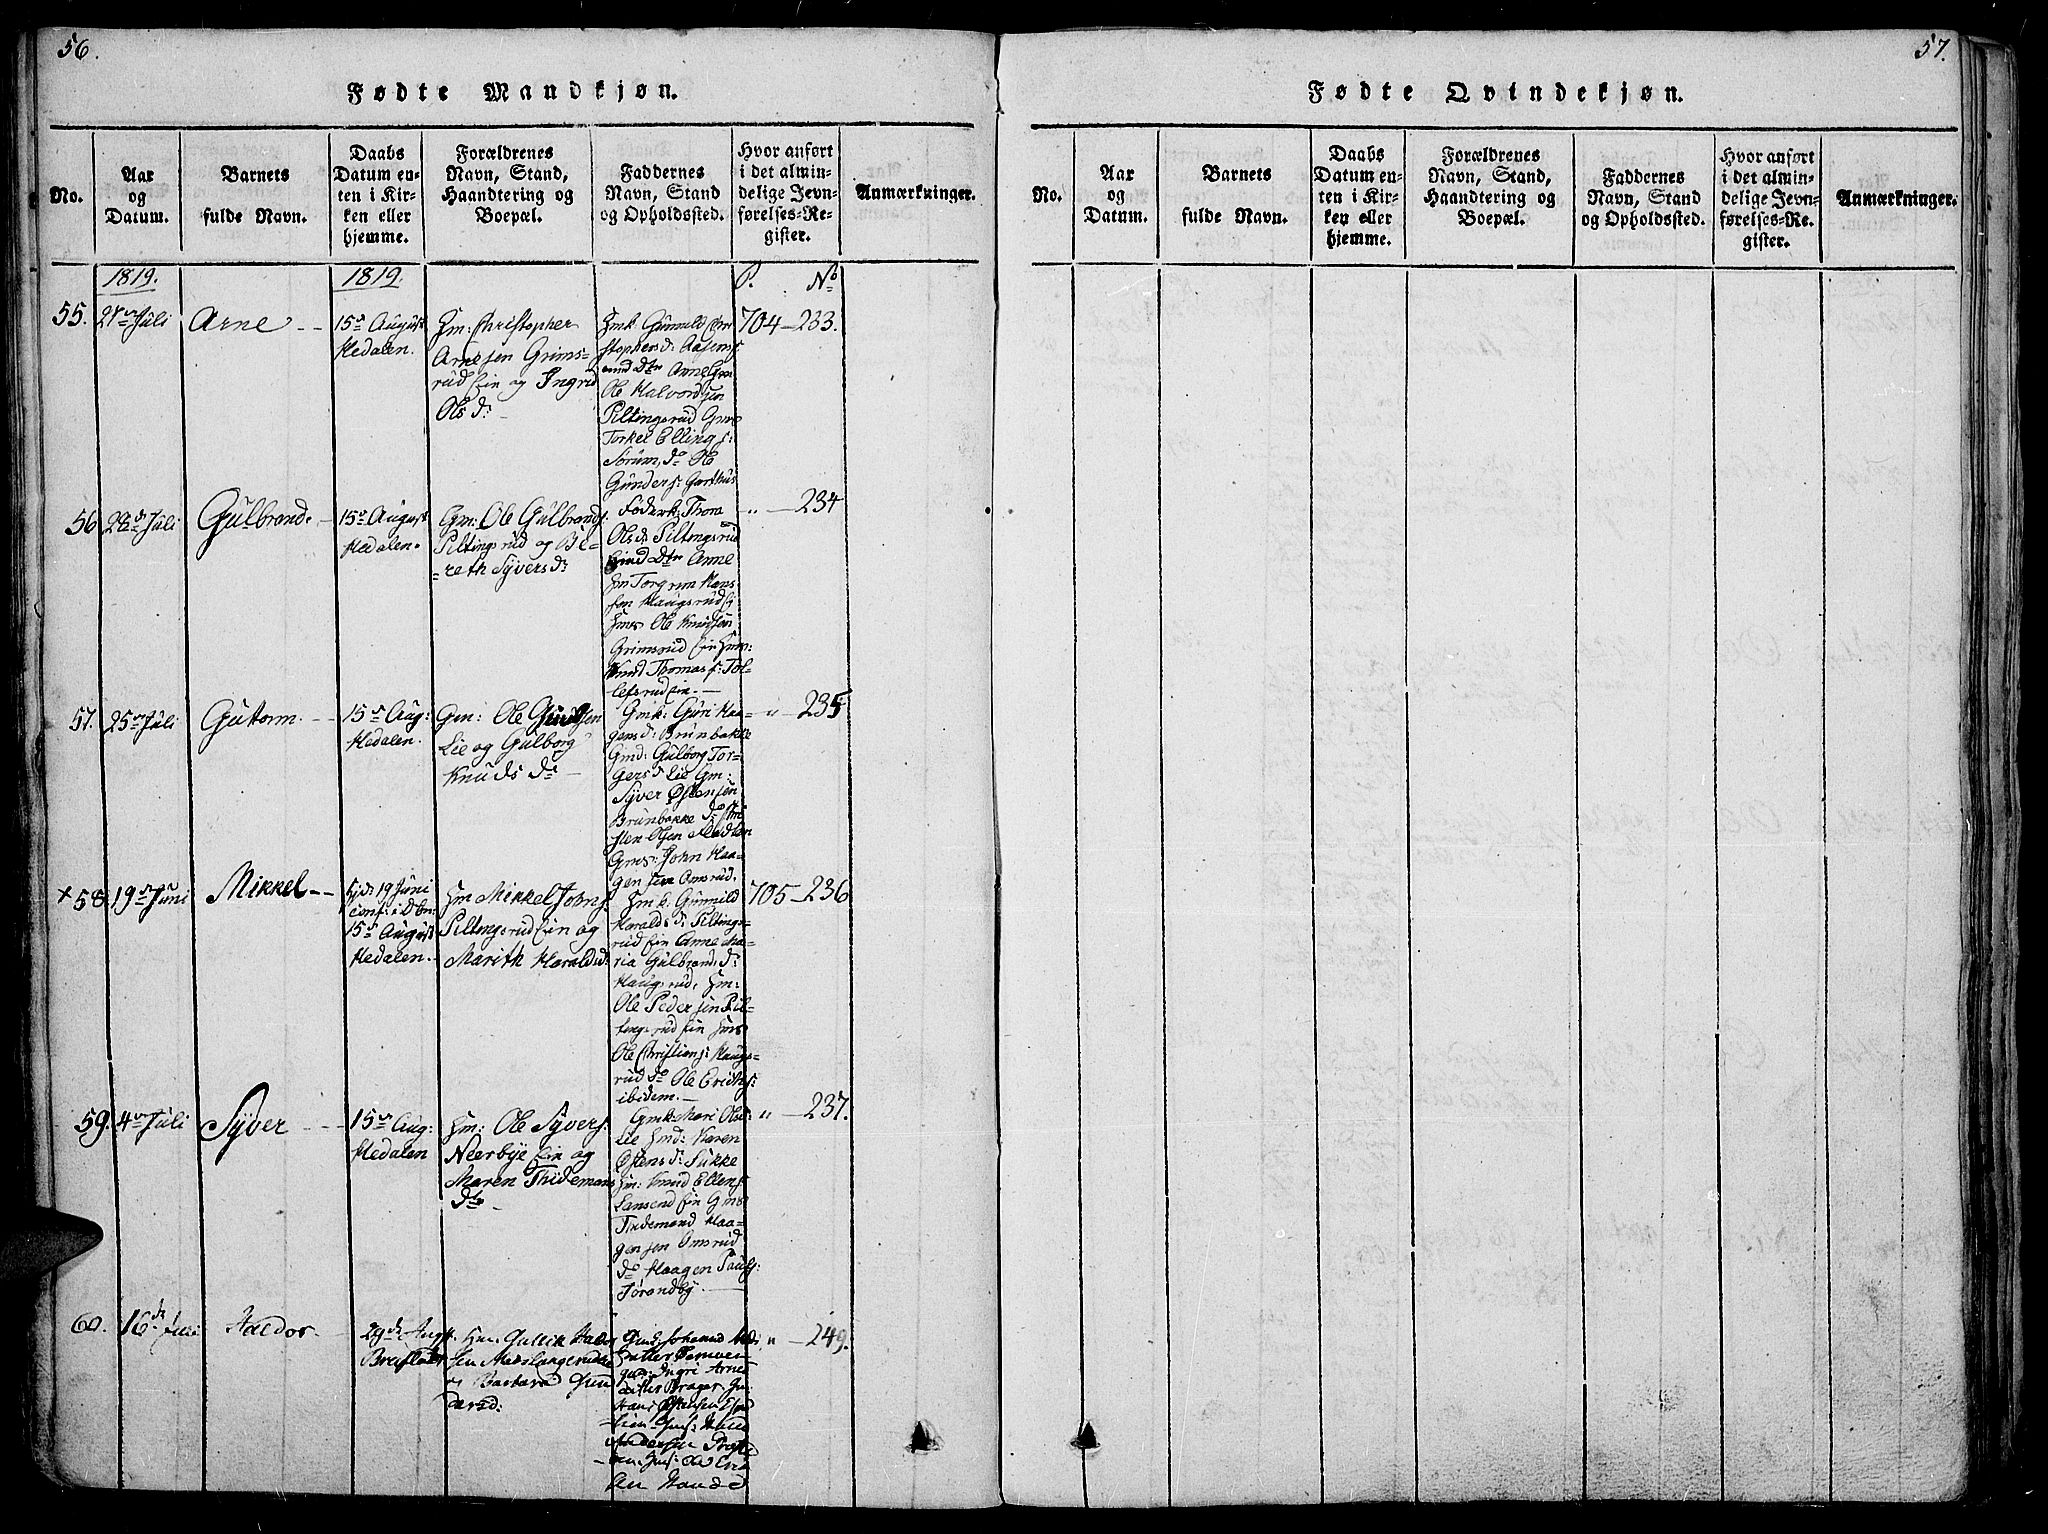 56.
Fødte Mandkjøn.
No.
Aar
og
Datum.
Barnets
fulde Navn.
Daabs
Datum en-
ten i Kir-
ken eller
hjemme.
Forældrenes
Navn, Stand,
Haandtering og
Boepæl.
Faddernes
Navn, Stand
og Opholdssted.
Hvor anført
i det almin-
delige Jevn-
førelses-Re-
gister.
Anmærkninger.
1819.
1819.
P. No
55.
27de Juli
Arne
15de August
Hedalen.
Hm: Christopher
Arnesen Grims-
rud Ein og Ingrid
Ols d:
Hmk: Gunnild Chri
stophers d:
Ole Halvordsen
Piltingsrud Gms
Torkel Elling s:
Sørum, do Ole
Gunders: Garthus
704 — 233.
56
28de Juli
Gulbrand.
15de August
Hedalen.
Gm: Ole Gulbrands:
Piltingsrud og Be-
-reth Syvers d:
Føderk: Thora
Olsd: Piltingsrud
Anne
Hm Torgrim Hans-
sen Haugsrud
Hms Ole Knudsen
Grimsrud Ein Hms:
Knud Thomas s: Tol-
lefsrud Ein.
" — 234
57.
25de Juli
Guttorm.
15de Aug:
Hedalen.
Gm: Ole Gundersen
Lie og Gulborg
Knuds dr
Gmk: Guri Haa-
gensd: Brunbakke
Gmd: Gulborg Tor-
gersd: Lie Gm:
Syver Østensen
Brunbakke do
sten Olsen
Gms: John Haa-
gensen Omsrud.
" — 235
× 58.
19de Juni
Mikkel
Hjd: 19 Juni
conf: i D Kn:
15de August
Hedalen.
Hm Mikkel Johns:
Piltingsrud Ein og
Marith Haraldsd:
Hmk: Gunnild
Haralds d: Piltings-
rud Ein Anne Ma-
ria Gulbrands d:
Haugsrud, Hm:
Ole Pedersen Pil-
tingsrud Ein Hms
Ole Christians: Haugs-
rud do Ole Erichs:
ibidem.
705 — 236
59.
4de Juli
Syver
15de Aug:
Hedalen
Hm: Ole Syvers:
Neerbye Ein og
Maren Thidemans
dtr
Gmk: Mari Olsd:
Lie Hmd: Karen
Østens d: Sukke
Hm: Knud Ellens
Lansend Ein Gms
Tidemand Haa-
gensen Omsrud
do Haagen Pauls:
Tørondby.
" — 237.
60.
16de Juli
Haldor.
29de Aug
Hm: Gullik
og Barbara Gun
dersd:
Gmd: Johanna
datter
Ingri Arne
datter Brager
Hans Østensen
Andersen
" — 249.
57.
Fødte Qvindekjøn.
No.
Aar
og
Datum.
Barnets
fulde Navn.
Daabs
Datum en-
ten i Kir-
ken eller
hjemme.
Forældrenes
Navn, Stand,
Haandtering og
Boepæl.
Faddernes
Navn, Stand
og Opholdssted.
Hvor anført
i det almin-
delige Jevn-
førelses-Re-
gister.
Anmærkninger.